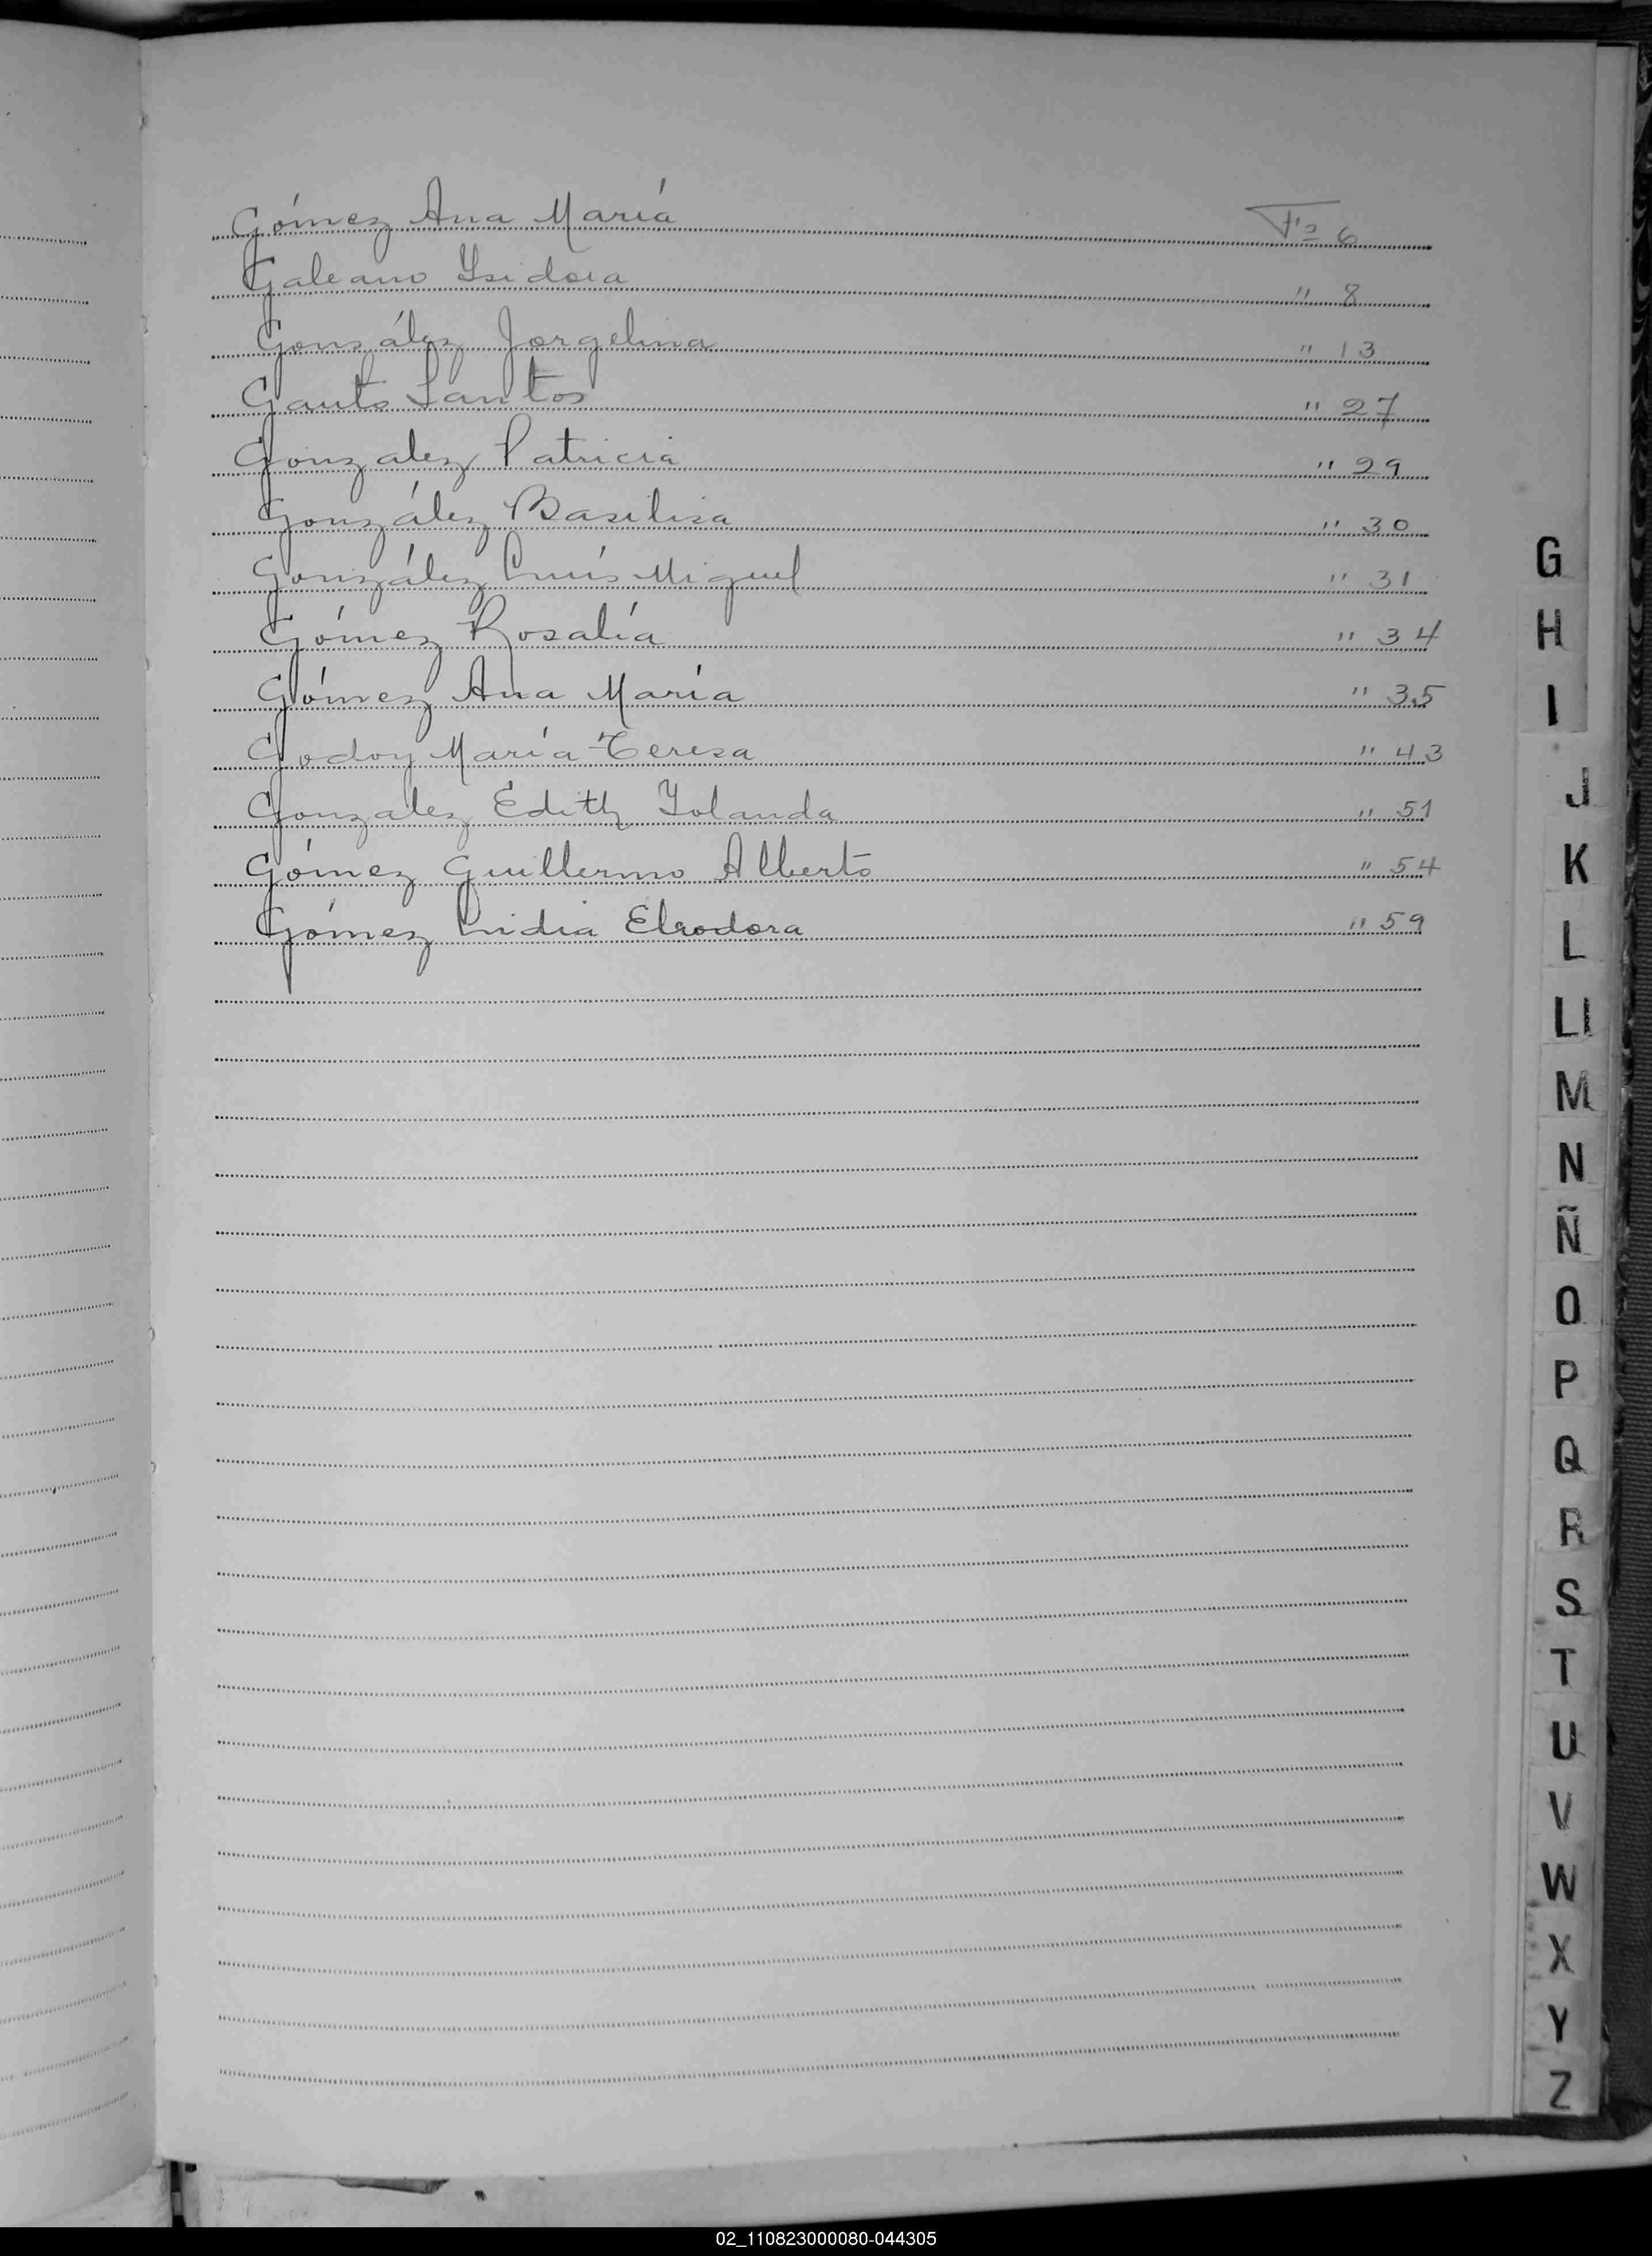 Gómez Ana María Fº 6
Galeano Isidora " 8
González Jorgelina " 13
Gauto Santos " 27
Gonzalez Patricia " 29
González Basilisa " 30
González Luís Miguel " 31
Gómez Rosalía " 34
Gómez Ana María " 35
Godoy María Teresa " 43
Gonzalez Edith Yolanda " 51
Gómez Guillermo Alberto " 54
Gómez Lidia Eleodora " 59
G
H
I
J
K
L
Ll
M
N
Ñ
O
P
Q
R
S
T
U
V
W
X
Y
Z
02_110823000080-044305